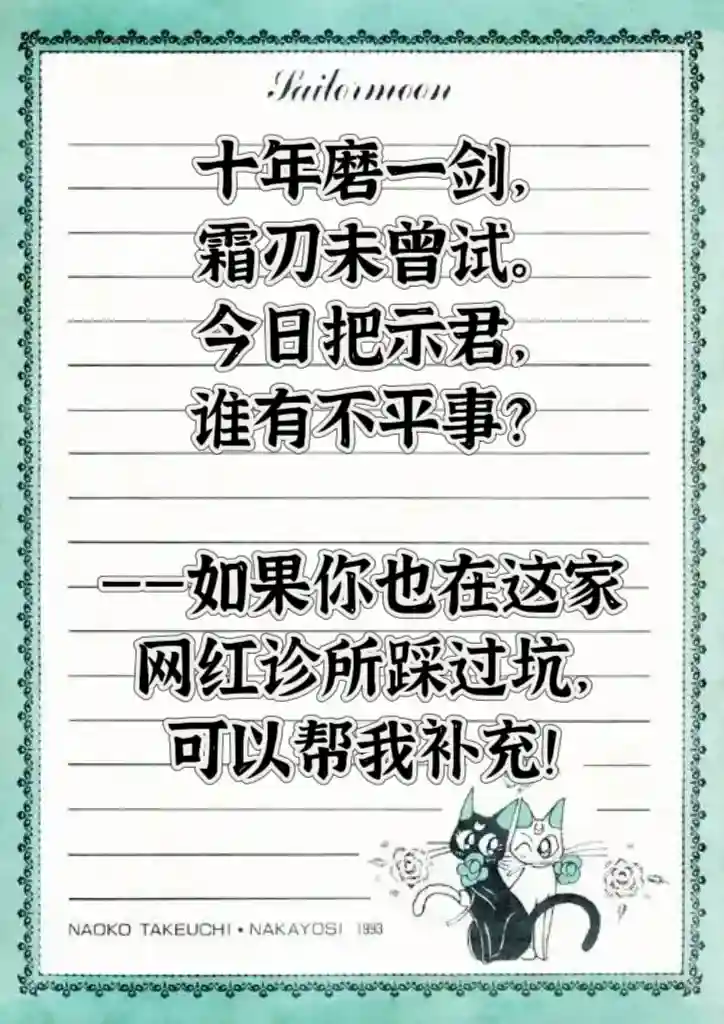 Sailormoon
十年磨一剑，
霜刃未曾试。
今日把示君，
谁有不平事？
——如果你也在这家
网红诊所踩过坑，
可以帮我补充！
NAOKO TAKEUCHI • NAKAYOSI 1993